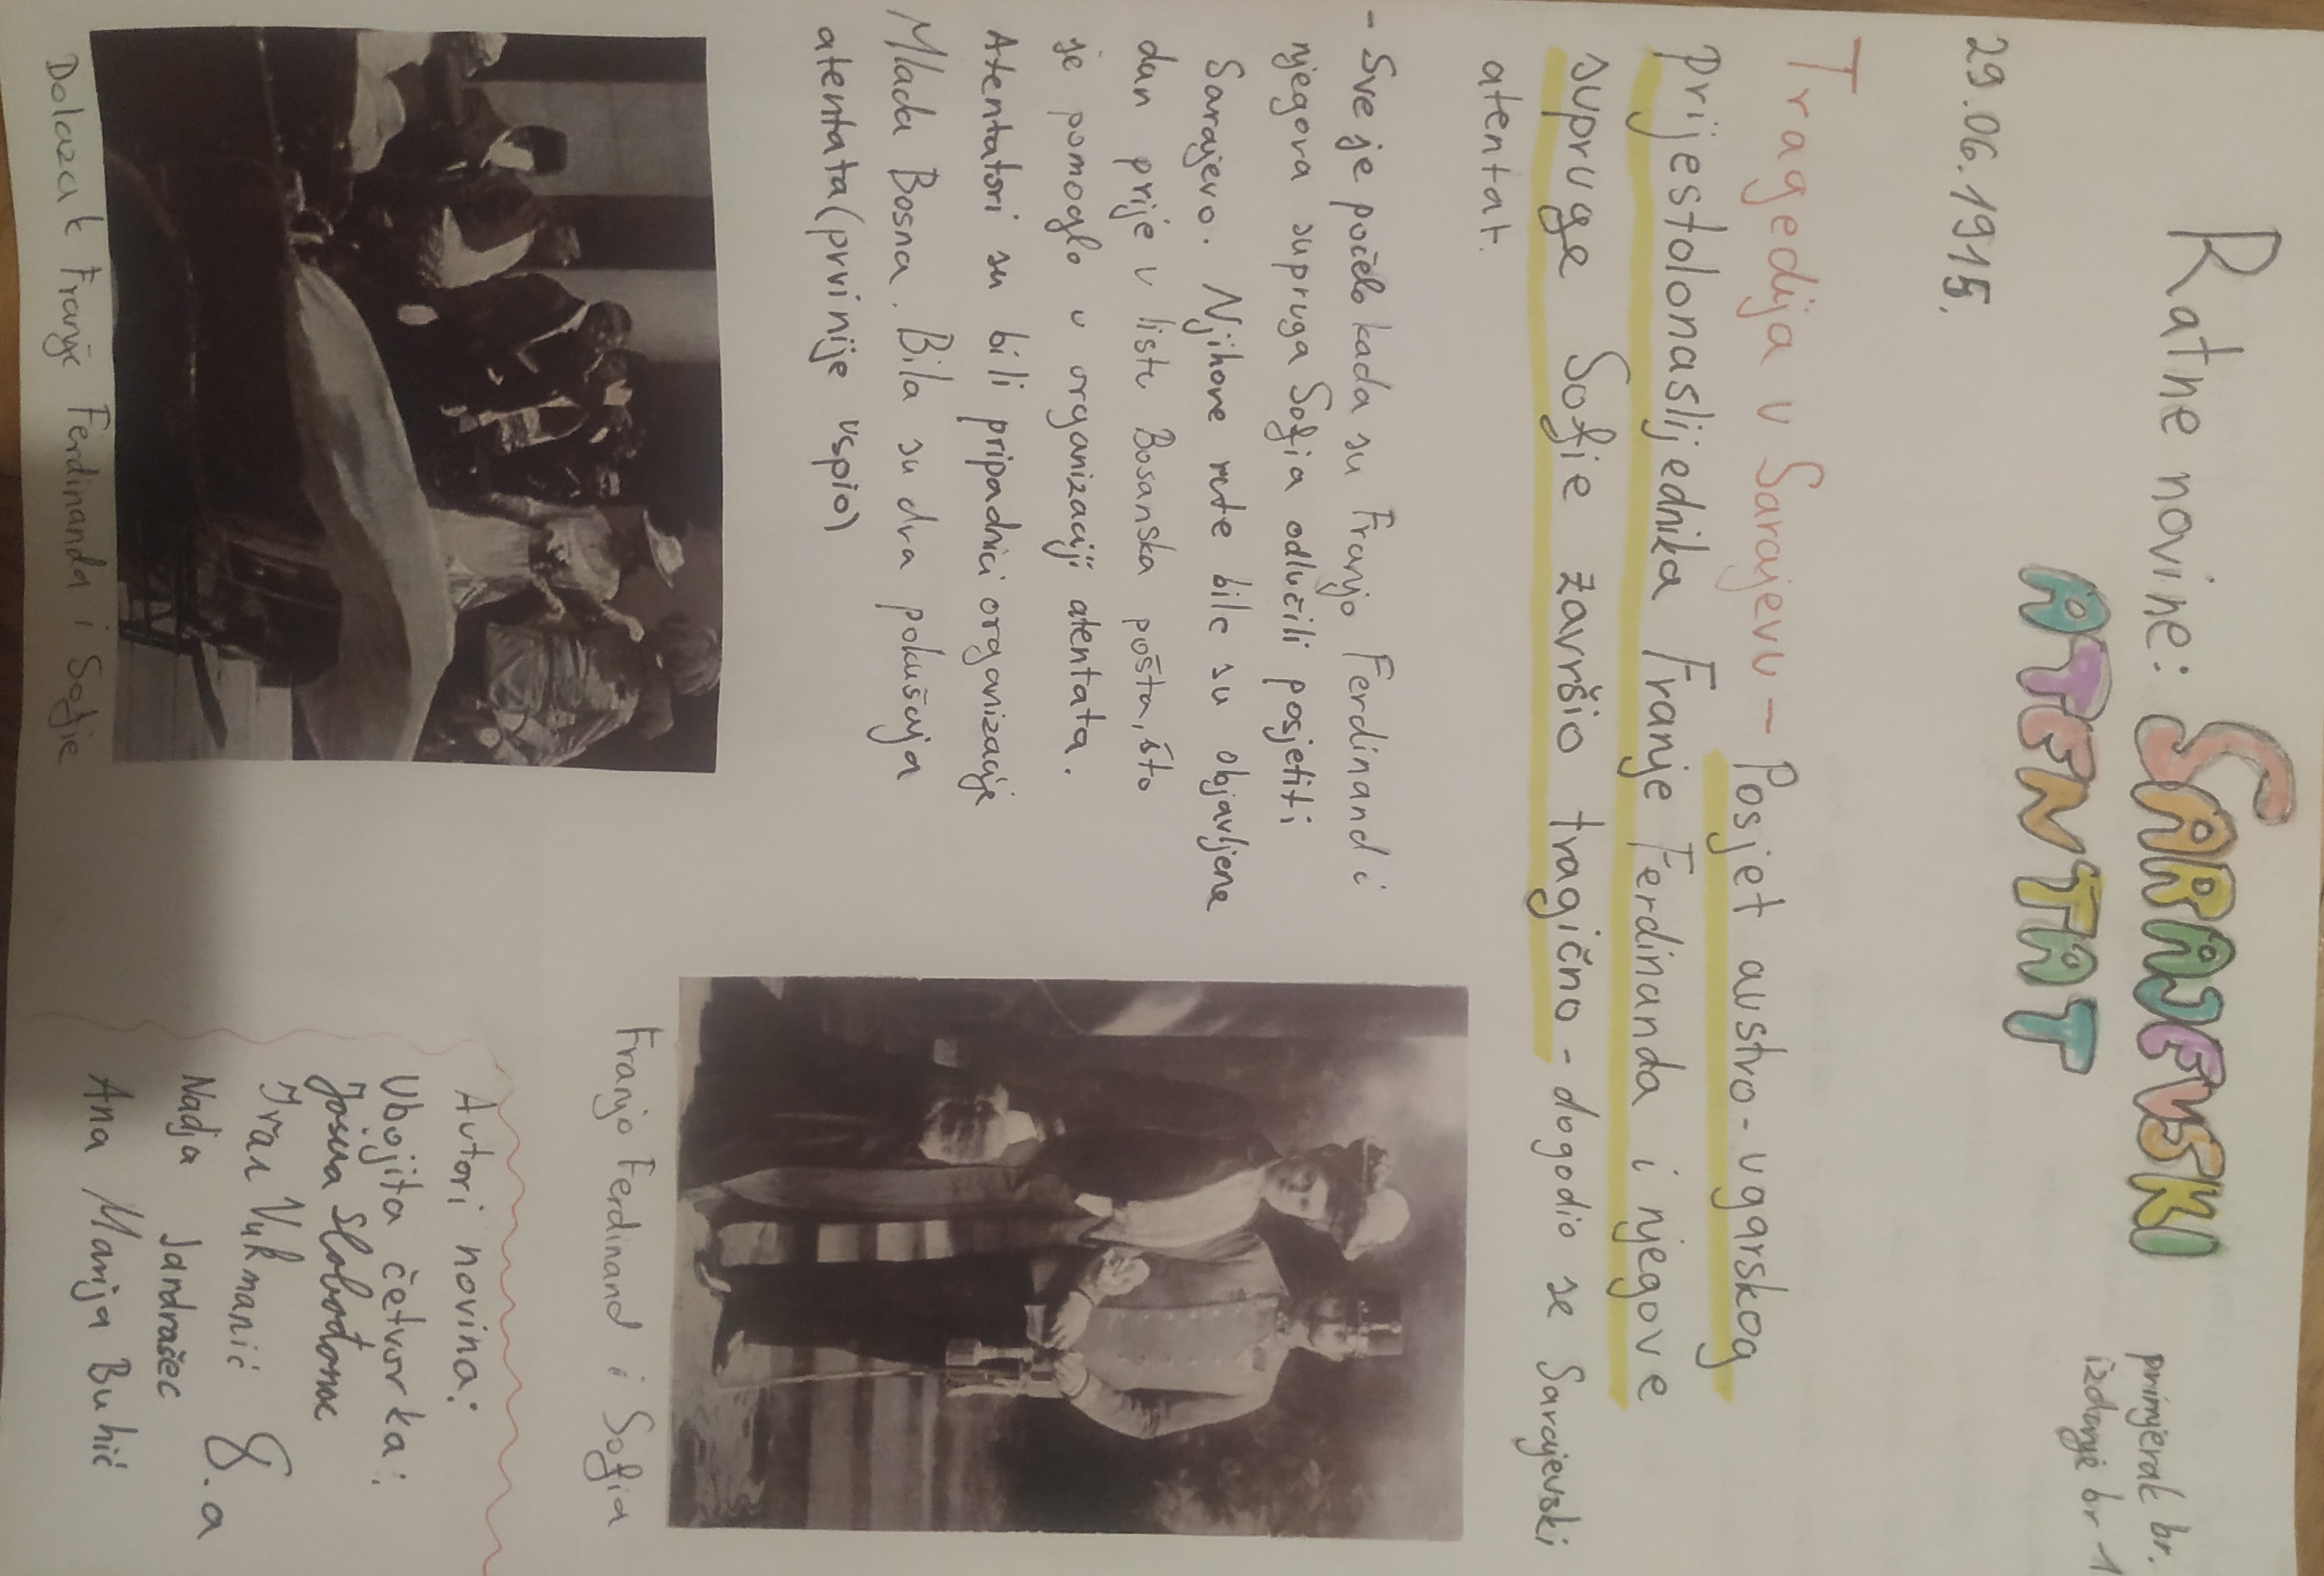 Ratne novine: SARAJEVSKI
ATENTAT
primjerak br.
izdanje br 1
29.06.1915.
Tragedija u Sarajevu - Posjet austro-ugarskog
prijestolonaslijednika Franje Ferdinanda i njegove
supruge Sofije završio tragično - dogodio se Sarajevski
atentat.
- Sve je počelo kada su Franjo Ferdinand i
njegova supruga Sofija odlučili posjetiti
Sarajevo. Njihove rute bile su objavljene
dan prije u listu Bosanska pošta, što
je pomoglo u organizaciji atentata.
Atentatori su bili pripadnici organizacije
Mlada Bosna. Bila su dva pokušaja
atentata (prvi nije uspio)
Dolazak Franje Ferdinanda i Sofije
Franjo Ferdinand i Sofija
Autori novina:
Ubojita četvorka:
Josua
Ivan Vukmanić
Nadja Jandrašec
8.a
Ana Marija Buhić